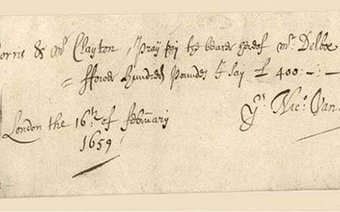 orris & Mr Clayton, Pray pay the bearer hereof Mr Delboe
= ffower hundred poundes I say £ 400: – : –
London the 16th of february
Yrs Nico: Van
1659